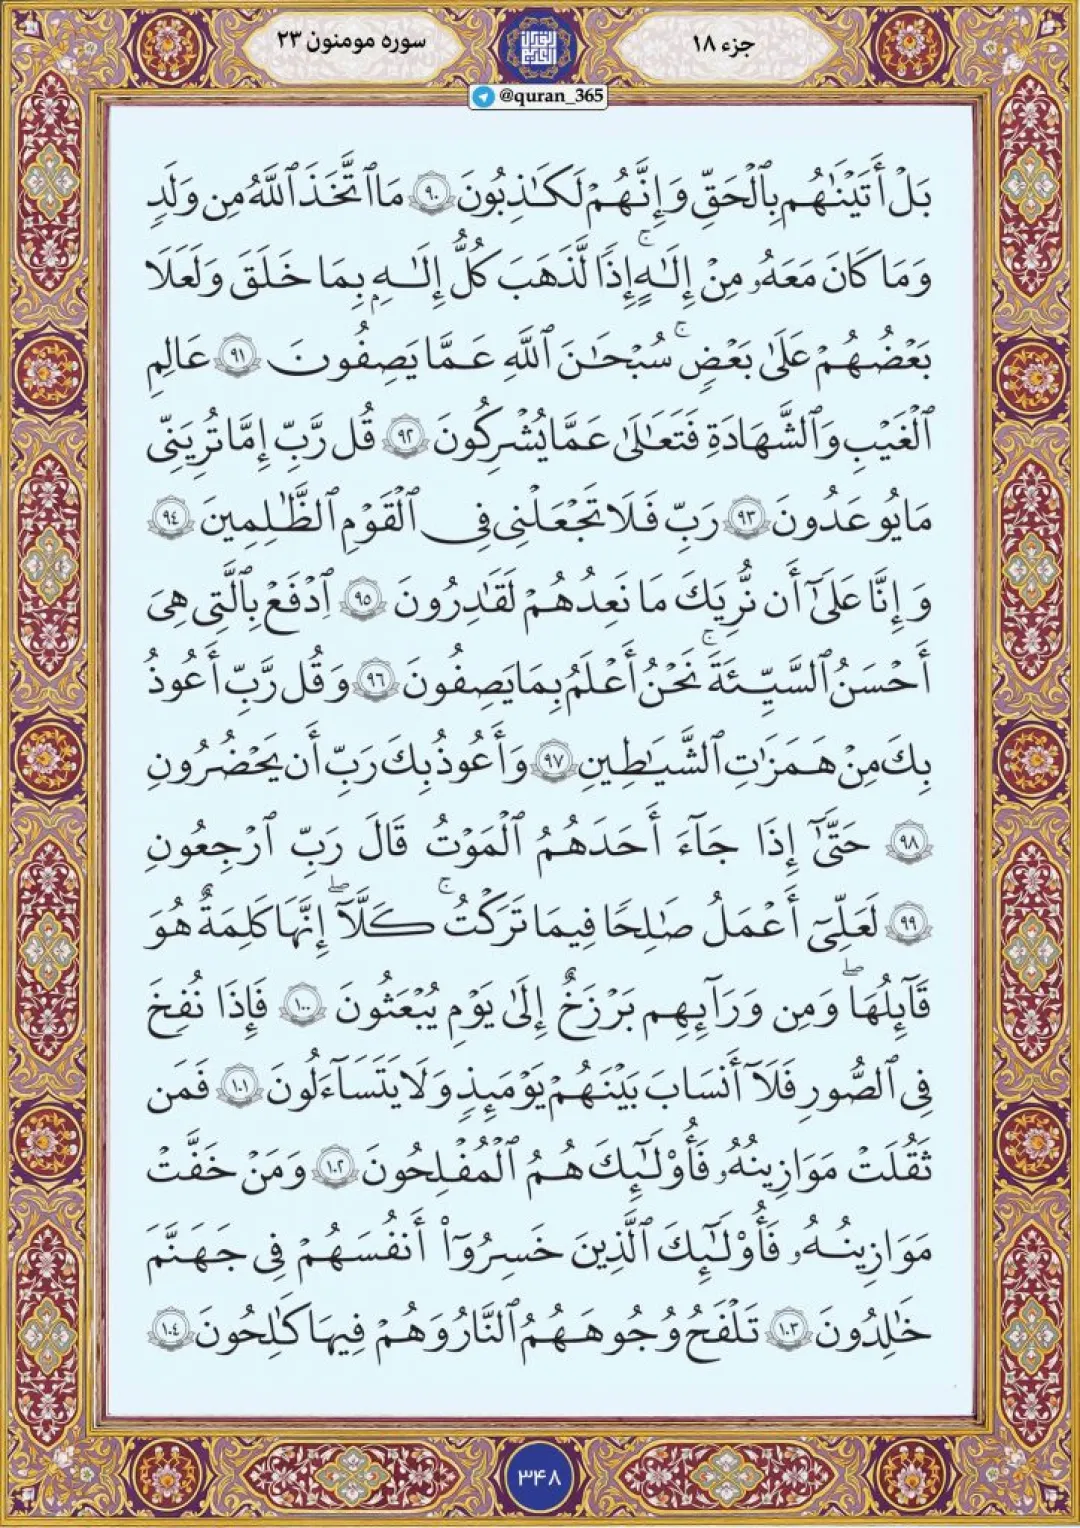 جزء ۱۸
سوره مومنون ۲۳
@quran_365
بَلْ أَتَيْنَٰهُم بِٱلْحَقِّ وَإِنَّهُمْ لَكَٰذِبُونَ ٩٠ مَا ٱتَّخَذَ ٱللَّهُ مِن وَلَدٍ
وَمَا كَانَ مَعَهُۥ مِنْ إِلَٰهٍ ۚ إِذًا لَّذَهَبَ كُلُّ إِلَٰهٍۭ بِمَا خَلَقَ وَلَعَلَا
بَعْضُهُمْ عَلَىٰ بَعْضٍ ۚ سُبْحَٰنَ ٱللَّهِ عَمَّا يَصِفُونَ ٩١ عَالِمِ
ٱلْغَيْبِ وَٱلشَّهَادَةِ فَتَعَالَىٰ عَمَّا يُشْرِكُونَ ٩٢ قُل رَّبِّ إِمَّا تُرِيَنِّى
مَا يُوعَدُونَ ٩٣ رَبِّ فَلَا تَجْعَلْنِى فِى ٱلْقَوْمِ ٱلظَّٰلِمِينَ ٩٤
وَإِنَّا عَلَىٰٓ أَن نُّرِيَكَ مَا نَعِدُهُمْ لَقَٰدِرُونَ ٩٥ ٱدْفَعْ بِٱلَّتِى هِىَ
أَحْسَنُ ٱلسَّيِّئَةَ ۚ نَحْنُ أَعْلَمُ بِمَا يَصِفُونَ ٩٦ وَقُل رَّبِّ أَعُوذُ
بِكَ مِنْ هَمَزَٰتِ ٱلشَّيَٰطِينِ ٩٧ وَأَعُوذُ بِكَ رَبِّ أَن يَحْضُرُونِ
٩٨ حَتَّىٰٓ إِذَا جَآءَ أَحَدَهُمُ ٱلْمَوْتُ قَالَ رَبِّ ٱرْجِعُونِ
٩٩ لَعَلِّىٓ أَعْمَلُ صَٰلِحًا فِيمَا تَرَكْتُ ۚ كَلَّآ ۖ إِنَّهَا كَلِمَةٌ هُوَ
قَآئِلُهَا ۖ وَمِن وَرَآئِهِم بَرْزَخٌ إِلَىٰ يَوْمِ يُبْعَثُونَ ١٠٠ فَإِذَا نُفِخَ
فِى ٱلصُّورِ فَلَآ أَنسَابَ بَيْنَهُمْ يَوْمَئِذٍ وَلَا يَتَسَآءَلُونَ ١٠١ فَمَن
ثَقُلَتْ مَوَازِينُهُۥ فَأُو۟لَٰٓئِكَ هُمُ ٱلْمُفْلِحُونَ ١٠٢ وَمَنْ خَفَّتْ
مَوَازِينُهُۥ فَأُو۟لَٰٓئِكَ ٱلَّذِينَ خَسِرُوٓا۟ أَنفُسَهُمْ فِى جَهَنَّمَ
خَٰلِدُونَ ١٠٣ تَلْفَحُ وُجُوهَهُمُ ٱلنَّارُ وَهُمْ فِيهَا كَٰلِحُونَ ١٠٤
۳۴۸